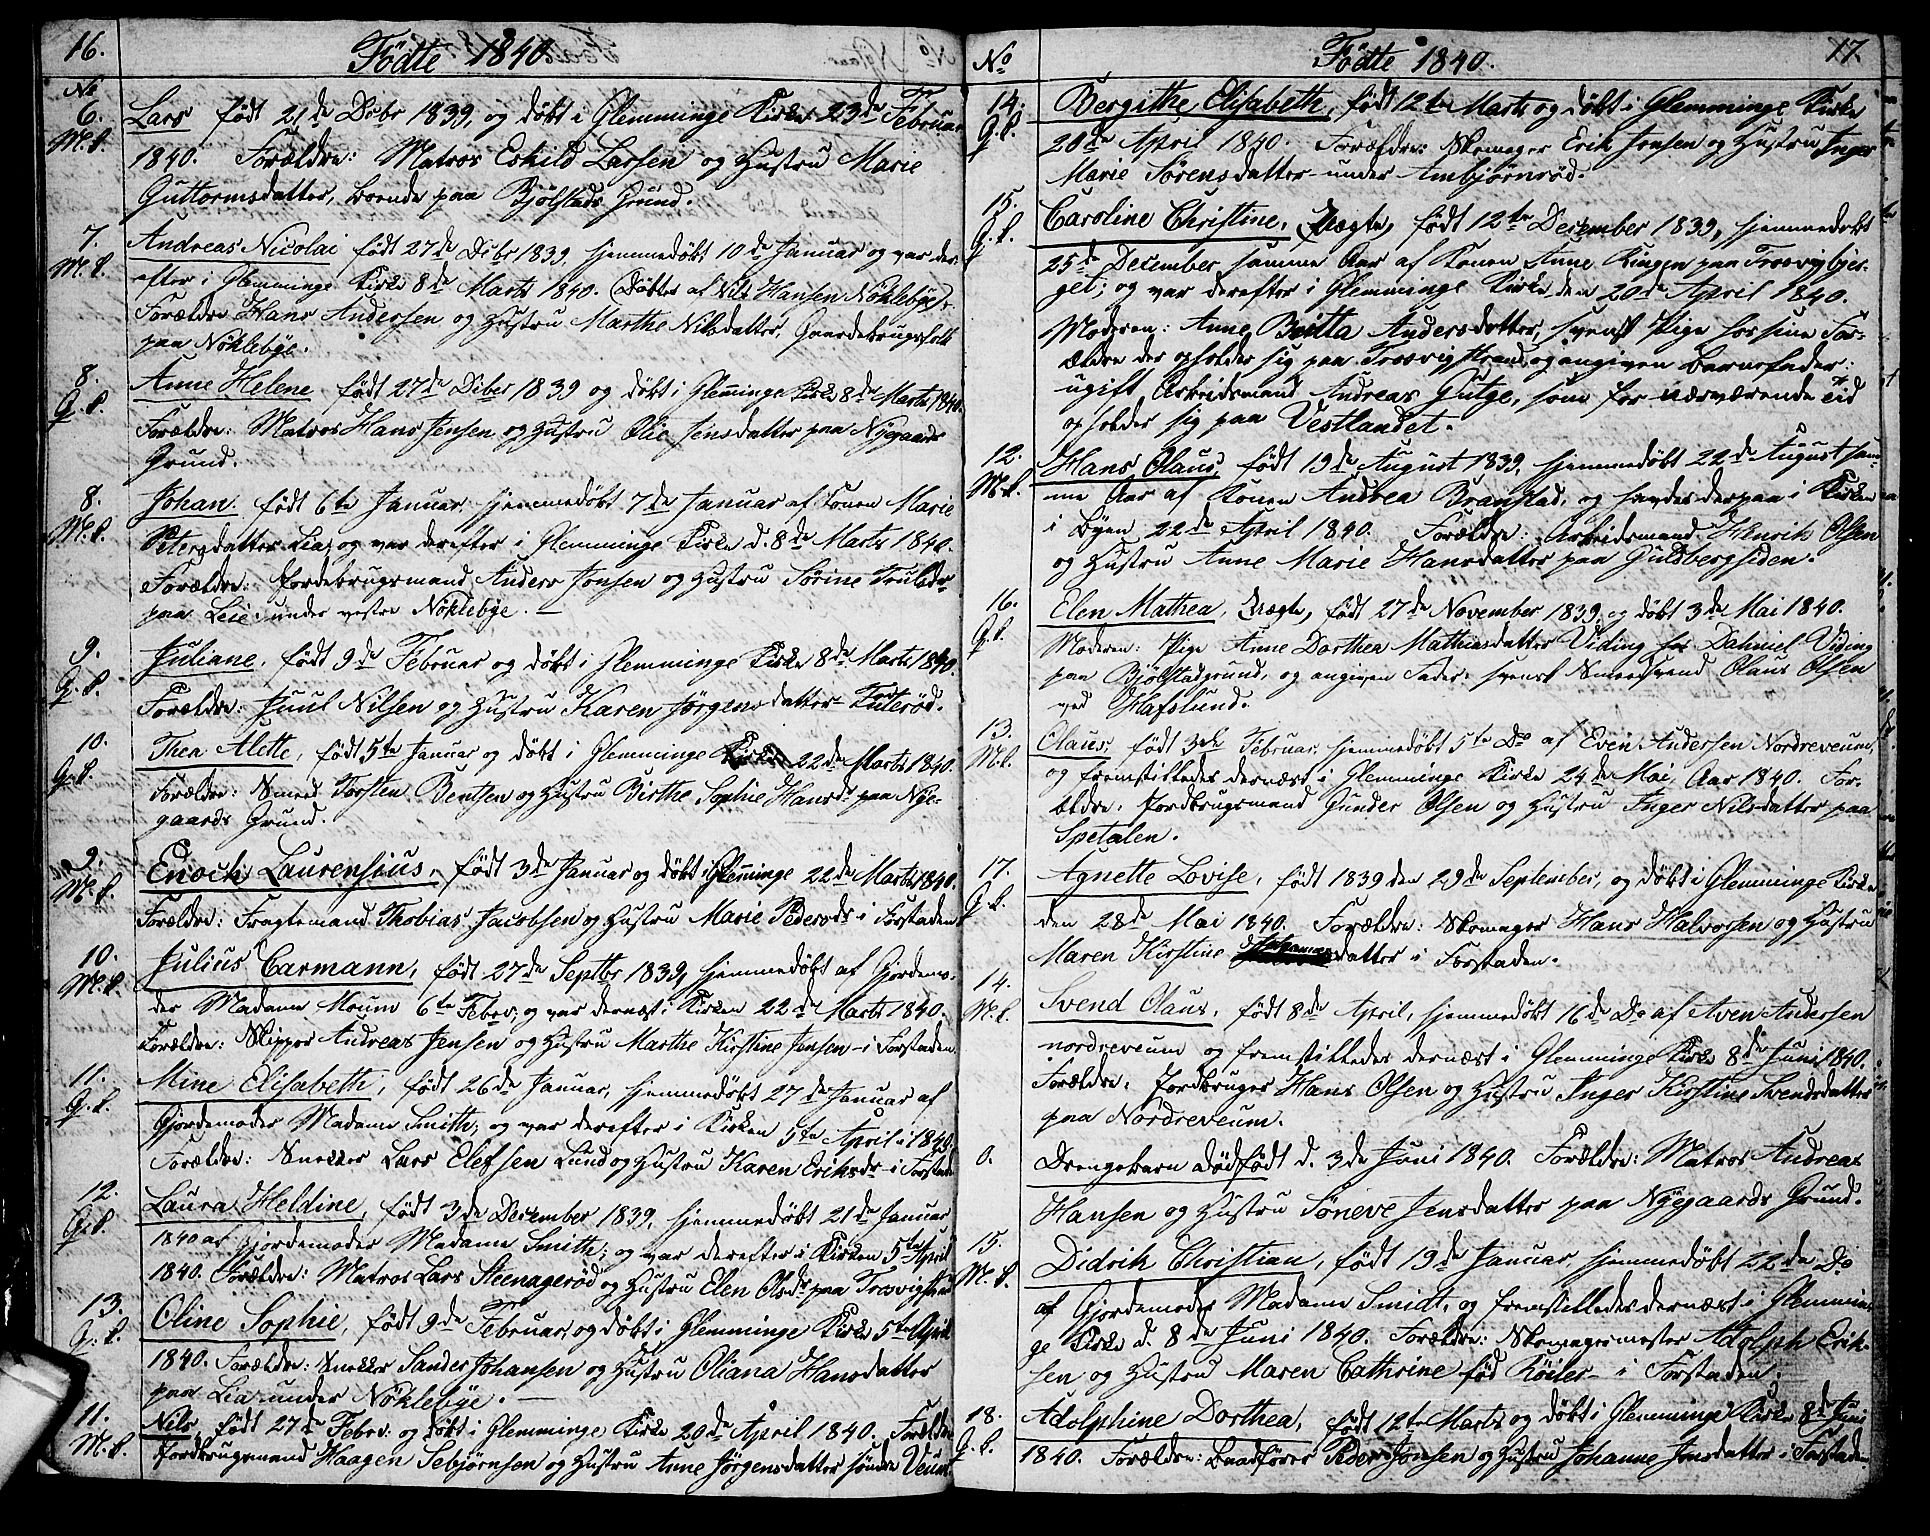 16.
Födte 1840.
No
6.
M.k.
Lars født 21de Debr 1839, og døbt i Glemminge Kirke 23de Februar
1840. Forældre: Matros Eskild Larsen og Hustru Marie
Guttormsdatter, boende paa Bjølstads Grund.
7.
M.k.
Andreas Nicolai født 27de Debr 1839, hjemmedøbt 10de Januar og var der-
efter i Glemminge Kirke 8de Marts 1840. (Døbter af Nils Hansen Nøklebye).
Forældre Hans Andersen og Hustru Marthe Nilsdatter, Gaardbrugerfolk
paa Nöklebye.
8.
Q.k.
Anne Helene født 27de Debr 1839 og døbt i Glemminge Kirke 8de Marts 1840.
Forældre: Matros Hans Jensen og Hustru Olie Jensdatter paa Nyegaards
Grund.
8.
M.k.
Johan født 6te Januar, hjemmedøbt 7de Januar af Konen Marie
Petersdatter Lia, og var derefter i Glemminge Kirke d. 8de Marts 1840.
Forældre: Jordbrugsmand Anders Jonsen og Hustru Sørine Trulsdr
paa Leie under vestre Nöklebye.
9.
Q.k.
Juliane, født 9de Februar og døbt i Glemminge Kirke 8de Marts 1840.
Forældre: Juul Nilsen og Hustru Karen Jörgensdatter
10.
Q.k.
Thea Alette, født 5te Januar og døbt i Glemminge Kirke 22de Marts 1840.
Forældre: Smed Torsten Bentsen og Hustru Birthe Sophie Hansdr paa Nye-
gaards Grund.
9.
M.k.
Enoch Laurensius, født 3de Januar og døbt i Glemminge 22de Marts 1840.
Forældre: Fragtemand Thobias Jacobsen og Hustru Marie Pedersdr i Forstaden
10.
M.k.
Julius Carmann, født 27de Septbr 1839, hjemmedøbt af Gjordemo-
der Madame Moum 6te Febr; og var dernæst i Kirken 22de Marts 1840.
Forældre: Skipper Andreas Jensen og Hustru Marthe Kirstine Jensen i Forstaden
11.
Q.k.
Mine Elisabeth, født 26de Januar, hjemmedøbt 27de Januar af
Gjordemoder Madame Smith; og var derefter i Kirken 5te April i 1840.
Forældre: Snekker Lars Elefsen Lund og Hustru Karen Eriksdr i Forstaden
12.
Q.k.
Laura Heldine, født 3de December 1839, hjemmedøbt 21de Januar
1840 af Gjordemoder Madame Smith; og var derefter i Kirken 5te April
1840. Forældre: Matros Lars Steenagerød og Hustru Elen Olsdr paa Trosvigstrand
13.
Q.k.
Oline Sophie, født 9de Februar, og døbt i Glemminge Kirke 5te April
1840. Forældre: Snekker Sander Johansen og Hustru Oliana Hansdatter
paa Lia under Nöklebye.
11.
M.k.
Nils, født 27de Febr: og døbt i Glemminge Kirke 20de April 1840. Forældre
Jordbrugsmand Haagen Sebjørnsen og Hustru Anne Jørgensdatter söndre Veum
No
Födte 1840.
17.
14.
Q.k.
Bergithe Elisabeth, født 12te Marts og døbt i Glemminge Kirke
20de April 1840. Forældre: Skomager Erik Jensen og Hustru Inger
Marie Sörensdatter under Ambjørnrød.
15.
Q.k.
Caroline Christine, Uægte, født 12te December 1839, hjemmedøbt
25de December samme Aar af Konen Anne Ringen paa Trosvigbjer-
get; og var derefter i Glemminge Kirke den 20de April 1840.
Moderen: Anne Britta Andersdatter, svensk Pige hos sine For-
ældre der opholder sig paa Trosvigstrand, og angiven Barnefader:
ugift Arbeidsmand Andreas Gutge, som for nærværende Tid
opholder sig paa Vestlandet.
12.
M.k.
Hans Olaus, født 19de August 1839, hjemmedøbt 22de August sam-
me Aar af Konen Andrea Branstad, og havdes derpaa i Kirken
i Byen 22de April 1840. Forældre: Arbeidsmand Henrik Olsen
og Hustru Anne Marie Hansdatter paa Guldbergsiden.
16.
Q.k.
Elen Mathea, Uægte, født 27de November 1839, og døbt 3de Mai 1840.
Moderen: Pige Anne Dorthea Mathiasdatter Viding hos Dahniel Viding
paa Bjølstadgrund, og angiven Fader: svensk Smedsvend Olaus Olsen
ved Hafslund.
13.
M.k.
Olaus, født 3de Februar, hjemmedøbt 5te Do af Even Andersen Nordreveum,
og fremstilledes dernæst i Glemminge Kirke 24de Mai, Aar 1840. For-
ældre: Jordbrugsmand Gunder Olsen og Hustru Inger Nilsdatter paa
Spetalen.
17.
Q.k.
Agnette Lovise, født 1839 den 29de September, og døbt i Glemminge Kirke
den 28de Mai 1840. Forældre: Skomager Hans Halvorsen og Hustru
Maren Kirstine Johannesdatter i Forstaden.
14.
M.k.
Svend Olaus, født 8de April, hjemmedøbt 16de Do af Aven Andersen
nordreveum og fremstilledes dernæst i Glemminge Kirke 8de Juni 1840.
Forældre: Jordbruger Hans Olsen og Hustru Inger Kirstine Svendsdatter
paa Nordreveum.
0.
Drengebarn dødfødt d. 3de Juni 1840. Forældre: Matros Andreas
Hansen og Hustru Söneve Jensdatter paa Nyegaards Grund.
15.
M.k.
Didrik Christian, født 19de Januar, hjemmedøbt 22de Do
af Gjordemoder Madame Smidt, og fremstilledes dernæst i Glemmin-
ge Kirke d. 8de Juni 1840. Forældre: Skomagermester Adolph Erik-
sen og Hustru Maren Cathrine fød Röiler i Forstaden.
18.
Q.k.
Adolphine Dorthea, født 12te Marts og døbt i Glemminge Kirke 8de Juni
1840. Forældre: Baadfører Peder Jonsen og Hustru Johanne Jensdatter i Forstaden.